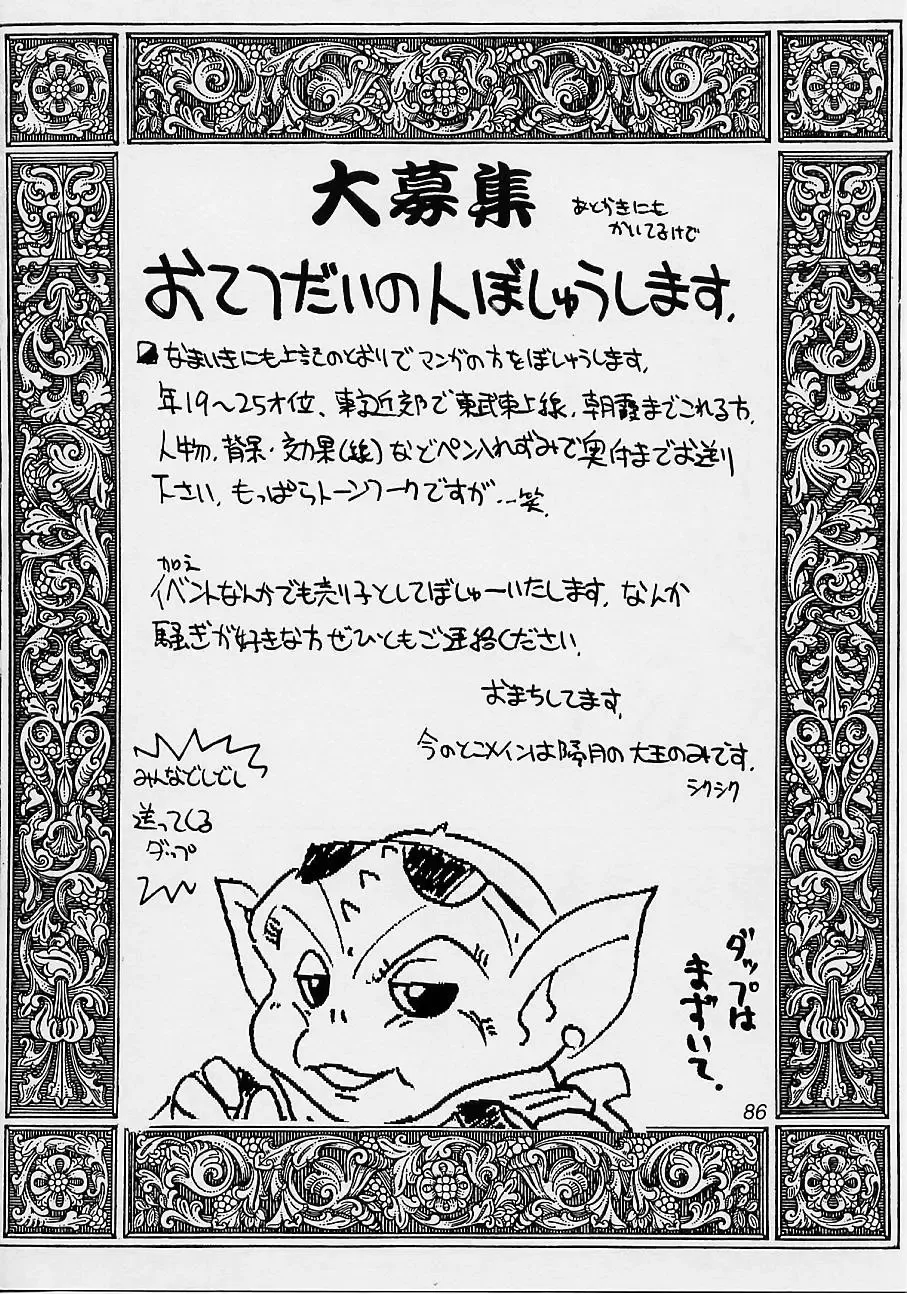 大募集
あとがきにも
かいてるけど
おてつだいの人ぼしゅうします.
なまいきにも上記のとおりでマンガの方をぼしゅうします.
年19〜25才位、東京近郊で東武東上線,朝霞までこれる方.
人物,背景・効果(線)などペン入れずみで奥付までお送り
下さい,もっぱらトーンワークですが…笑.
加え
イベントなんかでも売り子としてぼしゅーいたします.なんか
騒ぎが好きな方ぜひともご連絡ください.
おまちしてます.
今のとこメインは隔月の大王のみです.
シクシク
みんなどしどし
送ってくる
ダップ
ダップは
まずいて.
86